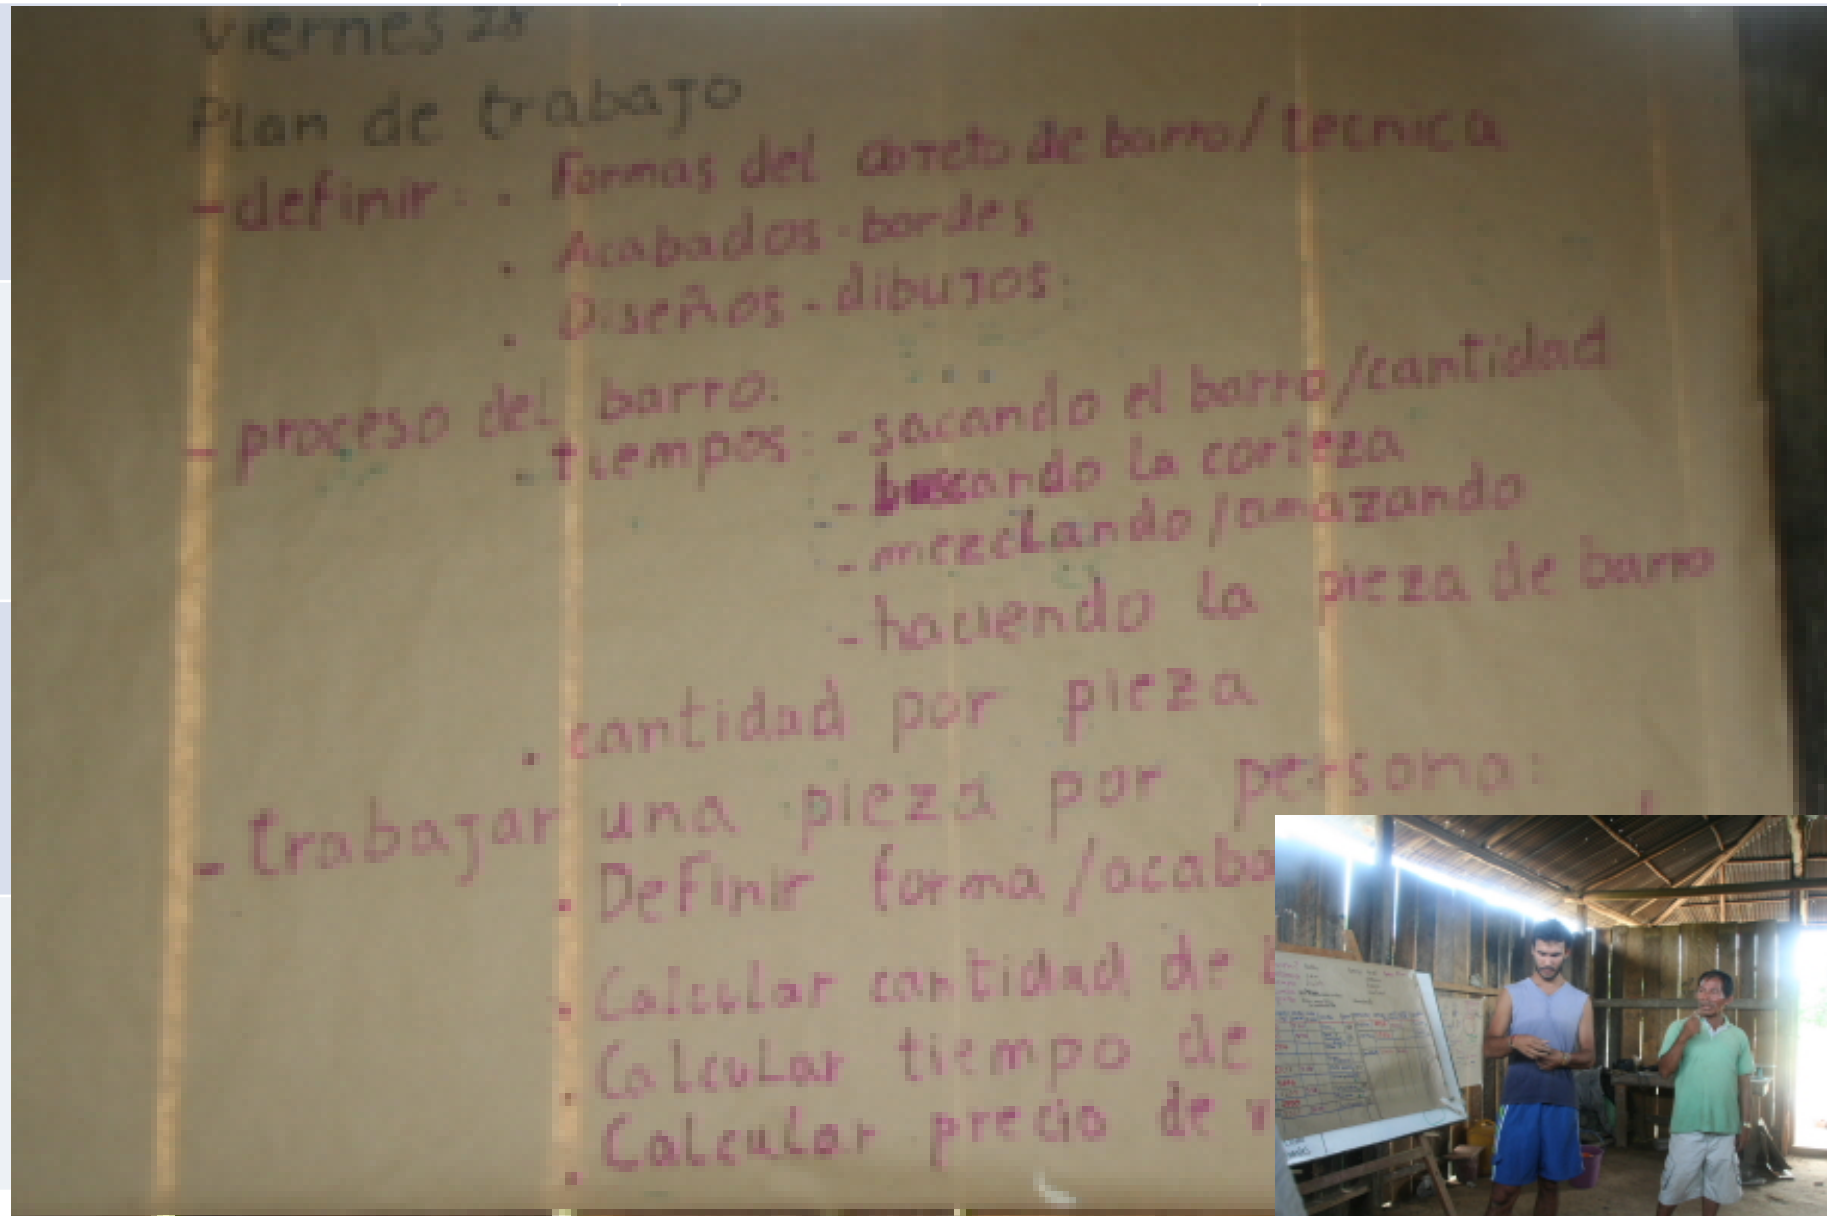 viernes 28
Plan de trabajo
- definir: . Formas del obJeto de barro/tecnica
. Acabados-bordes
. Diseños-dibuJos:
- proceso del barro:
. tiempos: - sacando el barro/cantidad
- buscando la corteza
- mezclando/amazando
- haciendo la pieza de barro
. cantidad por pieza
- trabaJar una pieza por persona:
. Definir forma/acaba
. Calcular cantidad de
. Calcular tiempo de
. Calcular precio de